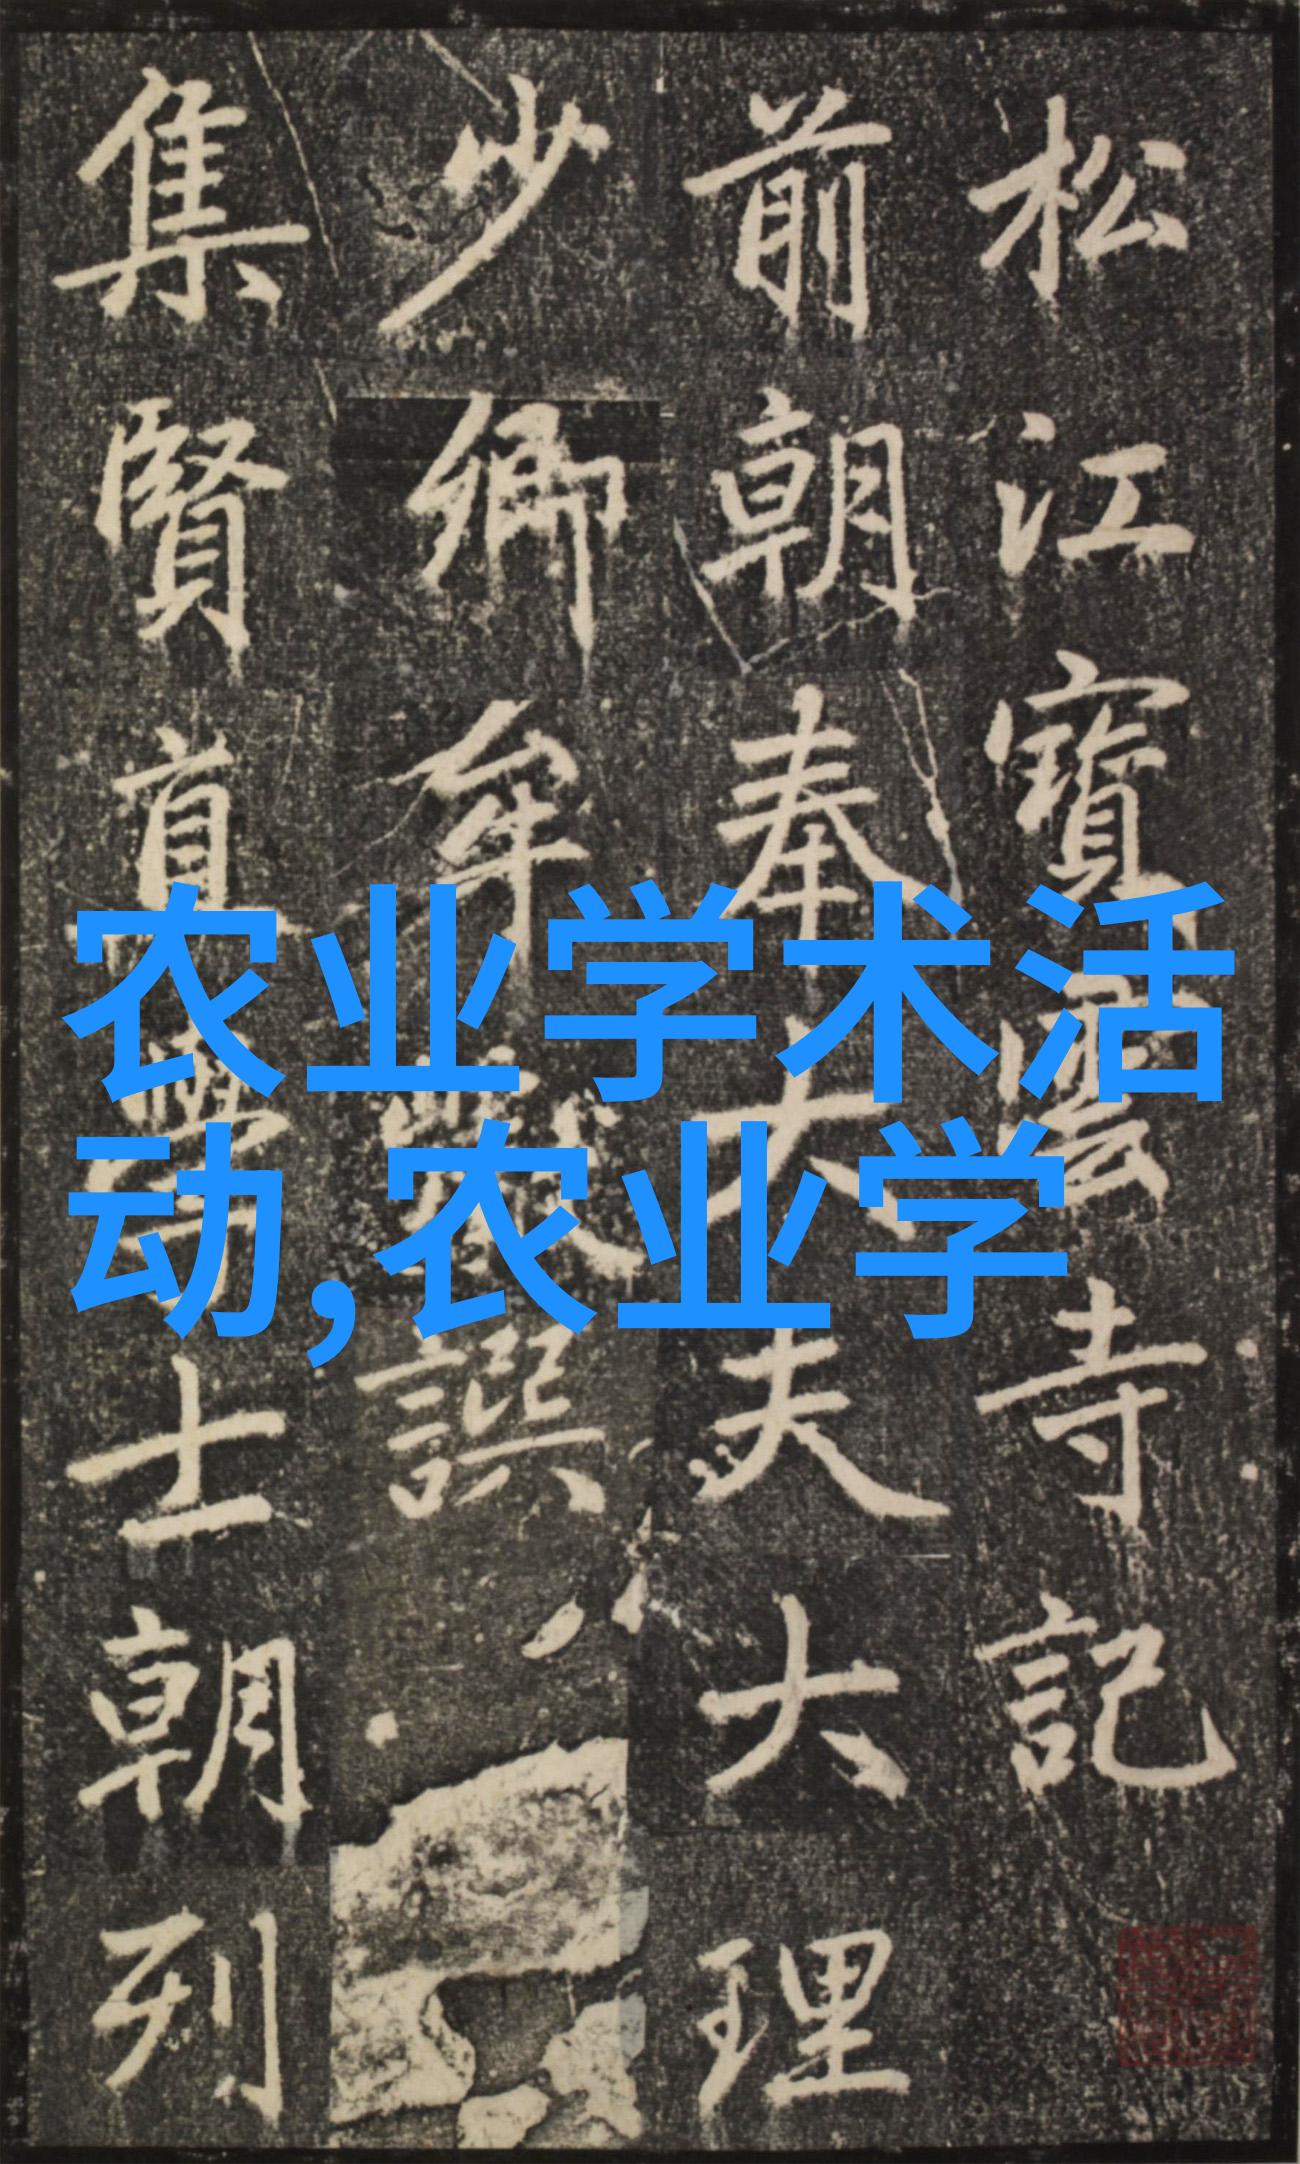 松江寶雲寺記
前朝奉大夫大理
少卿牟巘譔
集賢直學士朝列
农业学术活
动,农业学